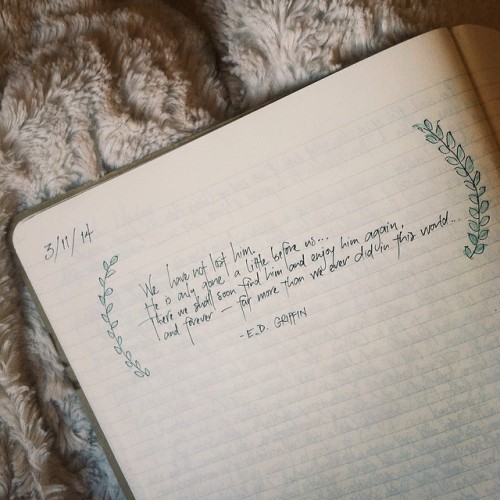 3/11/14
We have not lost him.
He is only gone a little before us...
There we shall soon find him and enjoy him again,
and forever — far more than we ever did in this world...
- E.D. GRIFFIN